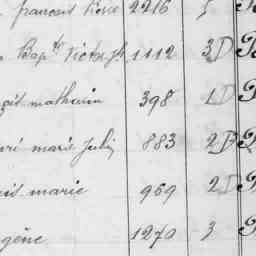 francois 2216 5
Bap.te Victor Jh 1112 3 D
çois mathurin 398 1 D
ré marie Julien 883 2 D
uis marie 969 2 D
gène 1270 3